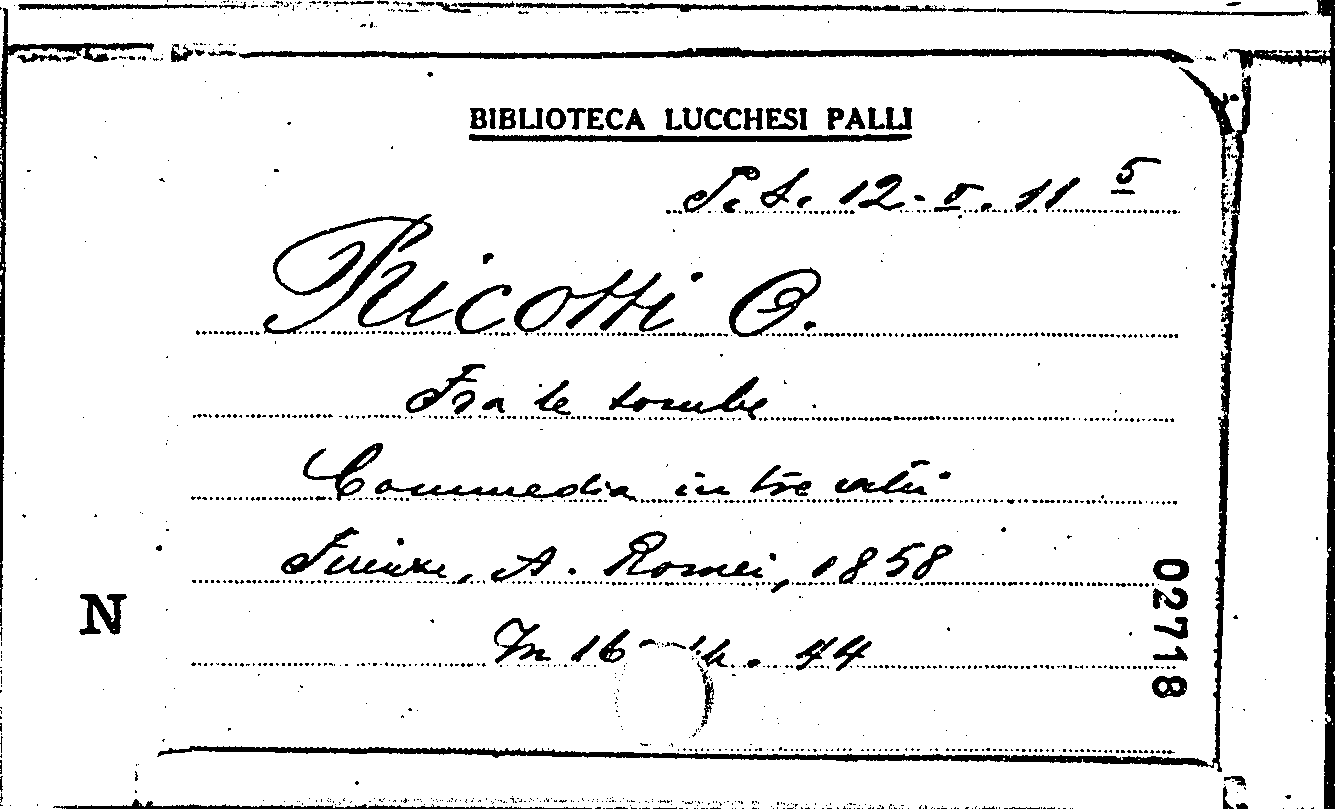 BIBLIOTECA LUCCHESI PALLI
12-V. 11 5
Ricotti
Fra le tombe
Commedia in tre atti
Firenze, A. Romei, 1858
N
In 16 44
02718